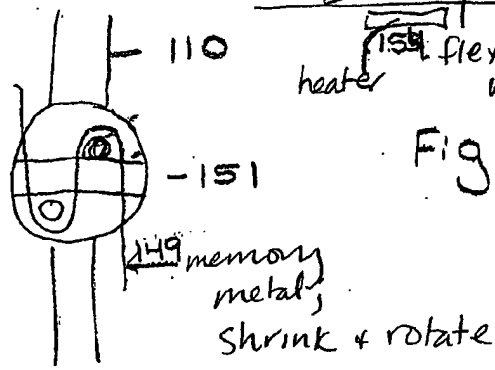 110
heater
154
Fig
-151
149 memory
metal,
shrink & rotate